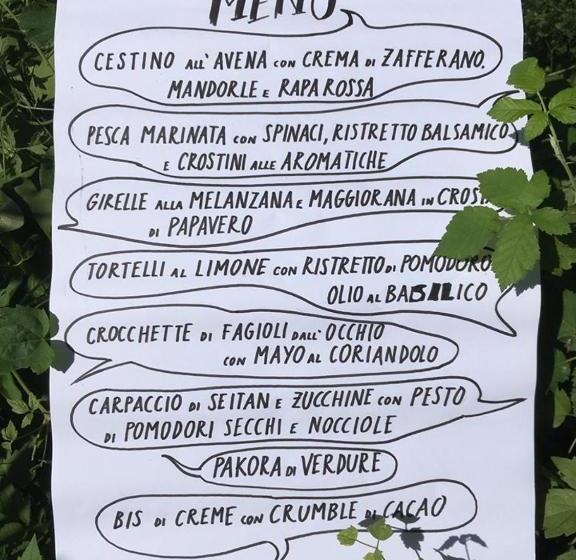 MENU
CESTINO ALL' AVENA CON CREMA DI ZAFFERANO.
MANDORLE E RAPA ROSSA
PESCA MARINATA CON SPINACI, RISTRETTO BALSAMICO
E CROSTINI ALLE AROMATICHE
GIRELLE ALLA MELANZANA E MAGGIORANA IN
DI PAPAVERO
TORTELLI AL LIMONE CON RISTRETTO DI POMODORO
OLIO AL BASILICO
CROCCHETTE DI FAGIOLI DALL' OCCHIO
CON MAYO AL CORIANDOLO
CARPACCIO DI SEITAN E ZUCCHINE CON PESTO
DI POMODORI SECCHI E NOCCIOLE
PAKORA DI VERDURE
BIS DI CREME CON CRUMBLE DI CACAO